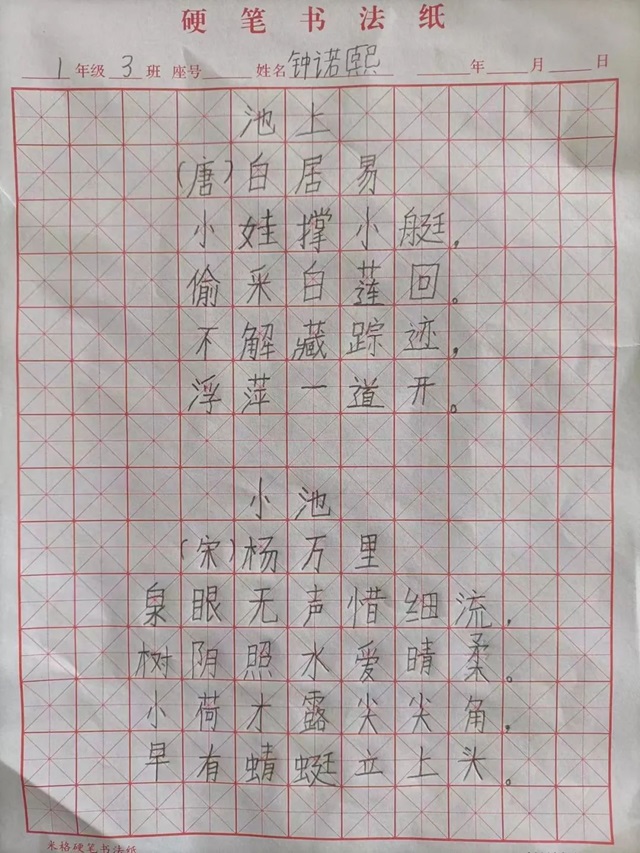 硬笔书法纸
1年级 3班 座号 姓名 钟诺熙 年 月 日
池上
(唐)白居易
小娃撑小艇，
偷采白莲回。
不解藏踪迹，
浮萍一道开。
小池
(宋)杨万里
泉眼无声惜细流，
树阴照水爱晴柔。
小荷才露尖尖角，
早有蜻蜓立上头。
米格硬笔书法纸